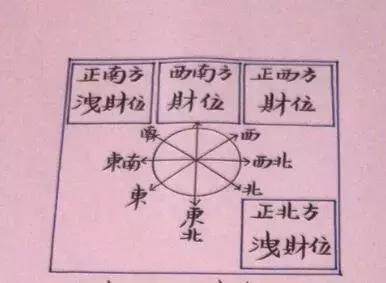 正南方
洩財位
西南方
財位
正西方
財位
西
東南
西北
東
北
東北
正北方
洩財位